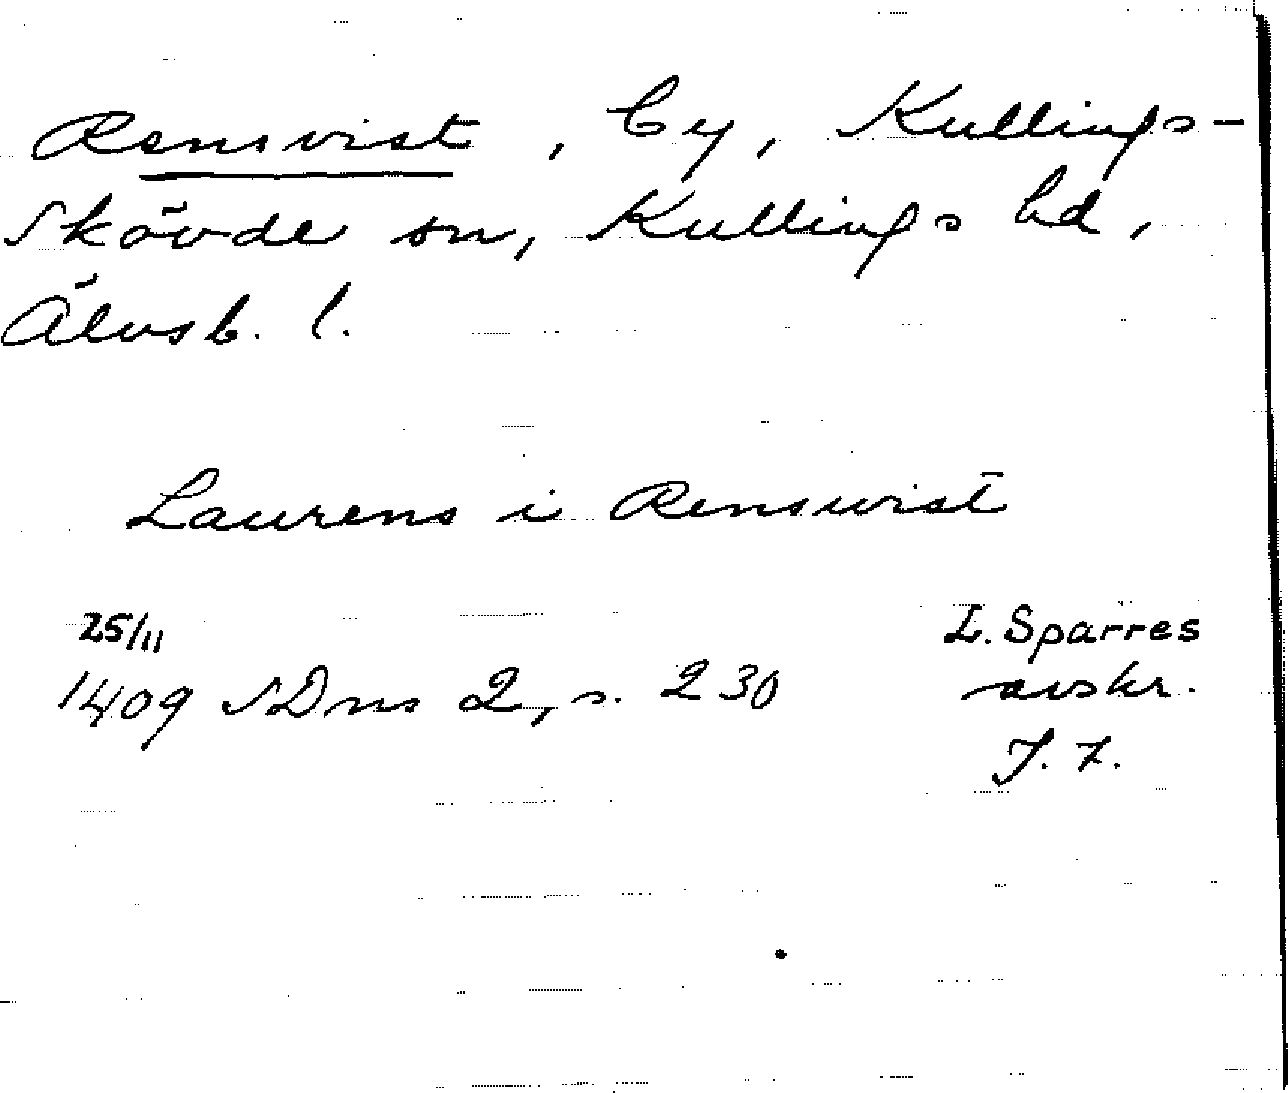 Rensvist, by, Kullings-
Skövde sn, Kullings hd,
Älvsb. l.
Laurens i Renswist
25/11
1409 SDns 2, s. 230
L. Sparres
avskr.
J. Z.